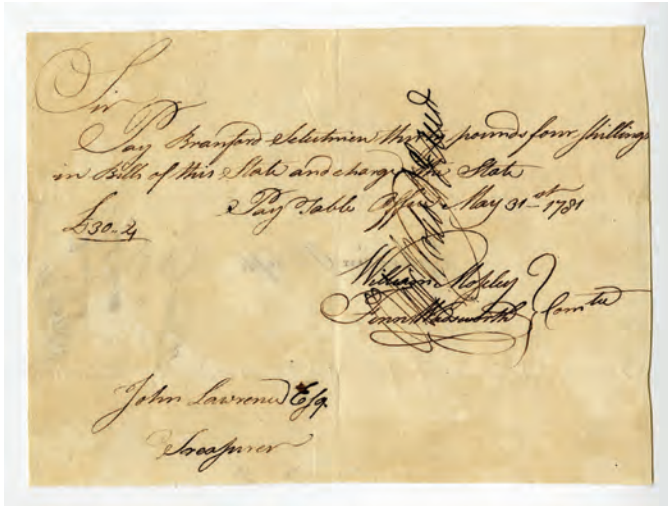 Sir
Pay Branford Selectmen thirty pounds four shillings
in Bills of this State and charge the State
£30-4 Pay Table Office May 31st 1781
William Mosley
Fenn Wadsworth } Comtee
John Lawrence Esq.
Treasurer